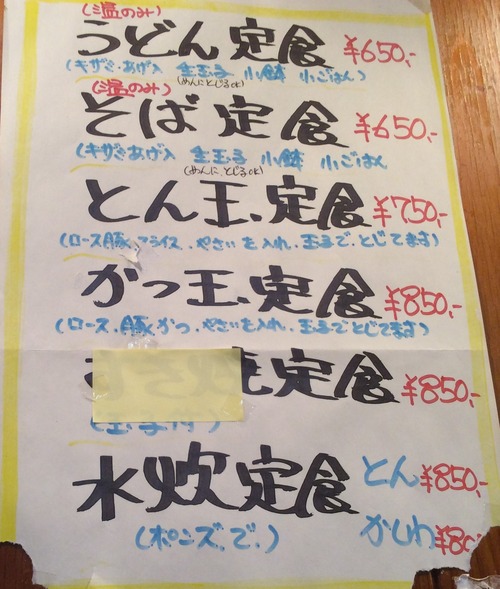 (温のみ)
うどん定食 ¥650,-
(キザミ・あげ入 生玉子 小鉢 小ごはん)
(めんにとじるOK)
(温のみ)
そば定食 ¥650,-
(キザミあげ入 生玉子 小鉢 小ごはん
(めんに、とじるOK)
とん玉、定食 ¥750,-
(ロース豚、スライス、やさいを入れ、玉子で、とじてます)
かつ玉、定食 ¥850,-
(ロース、豚かつ、やさいを入れ、玉子でとじてます)
焼定食 ¥850,-
水炊定食 とん ¥850,-
(ポンズ、で、) かしわ